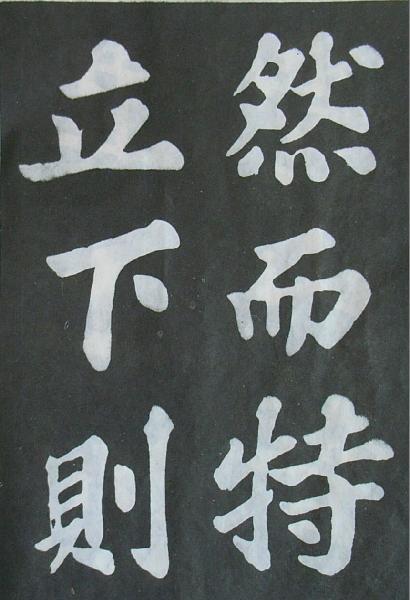 然而特
立下則